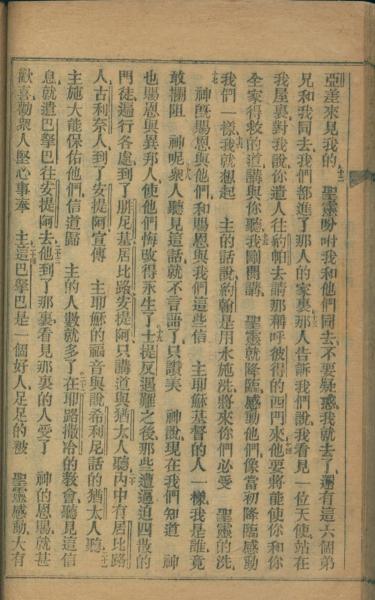 亞善來見我的 十二 聖靈吩咐我和他們同去不要疑惑我就去了還有這六個弟
兄和我同去我們都進了那人的家裏那人告訴我們說我看見一位天使站在
我屋裏對我說你遣人往約帕去請那稱呼彼得的西門來他要將能使你和你
全家得救的道講與你聽我剛開講 聖靈就降臨感動他們像當初降臨感動
我們一樣我就想起 主的話說約翰是用水施洗將來你們必受 聖靈的洗
神旣賜恩與他們和賜恩與我們這些信 主耶穌基督的人一樣我是誰竟
敢攔阻 神呢衆人聽見這話就不言語了只讚美 神說現在我們知道 神
也賜恩與異邦人使他們悔改得永生了士提反遇難之後那些遭逼迫四散的
門徒遍行各處到了腓尼基居比路安提阿只講道與猶太人聽內中有居比路
人古利奈人到了安提阿宣傳 主耶穌的福音與說希利尼話的猶太人聽
主施大能保佑他們信道歸 主的人數就多了在耶路撒冷的教會聽見這信
息就遣巴拏巴往安提阿去他到了那裏看見那裏的人受了 神的恩賜就甚
歡喜勸衆人堅心事奉 主這巴拏巴是一個好人足足的被 聖靈感動大有